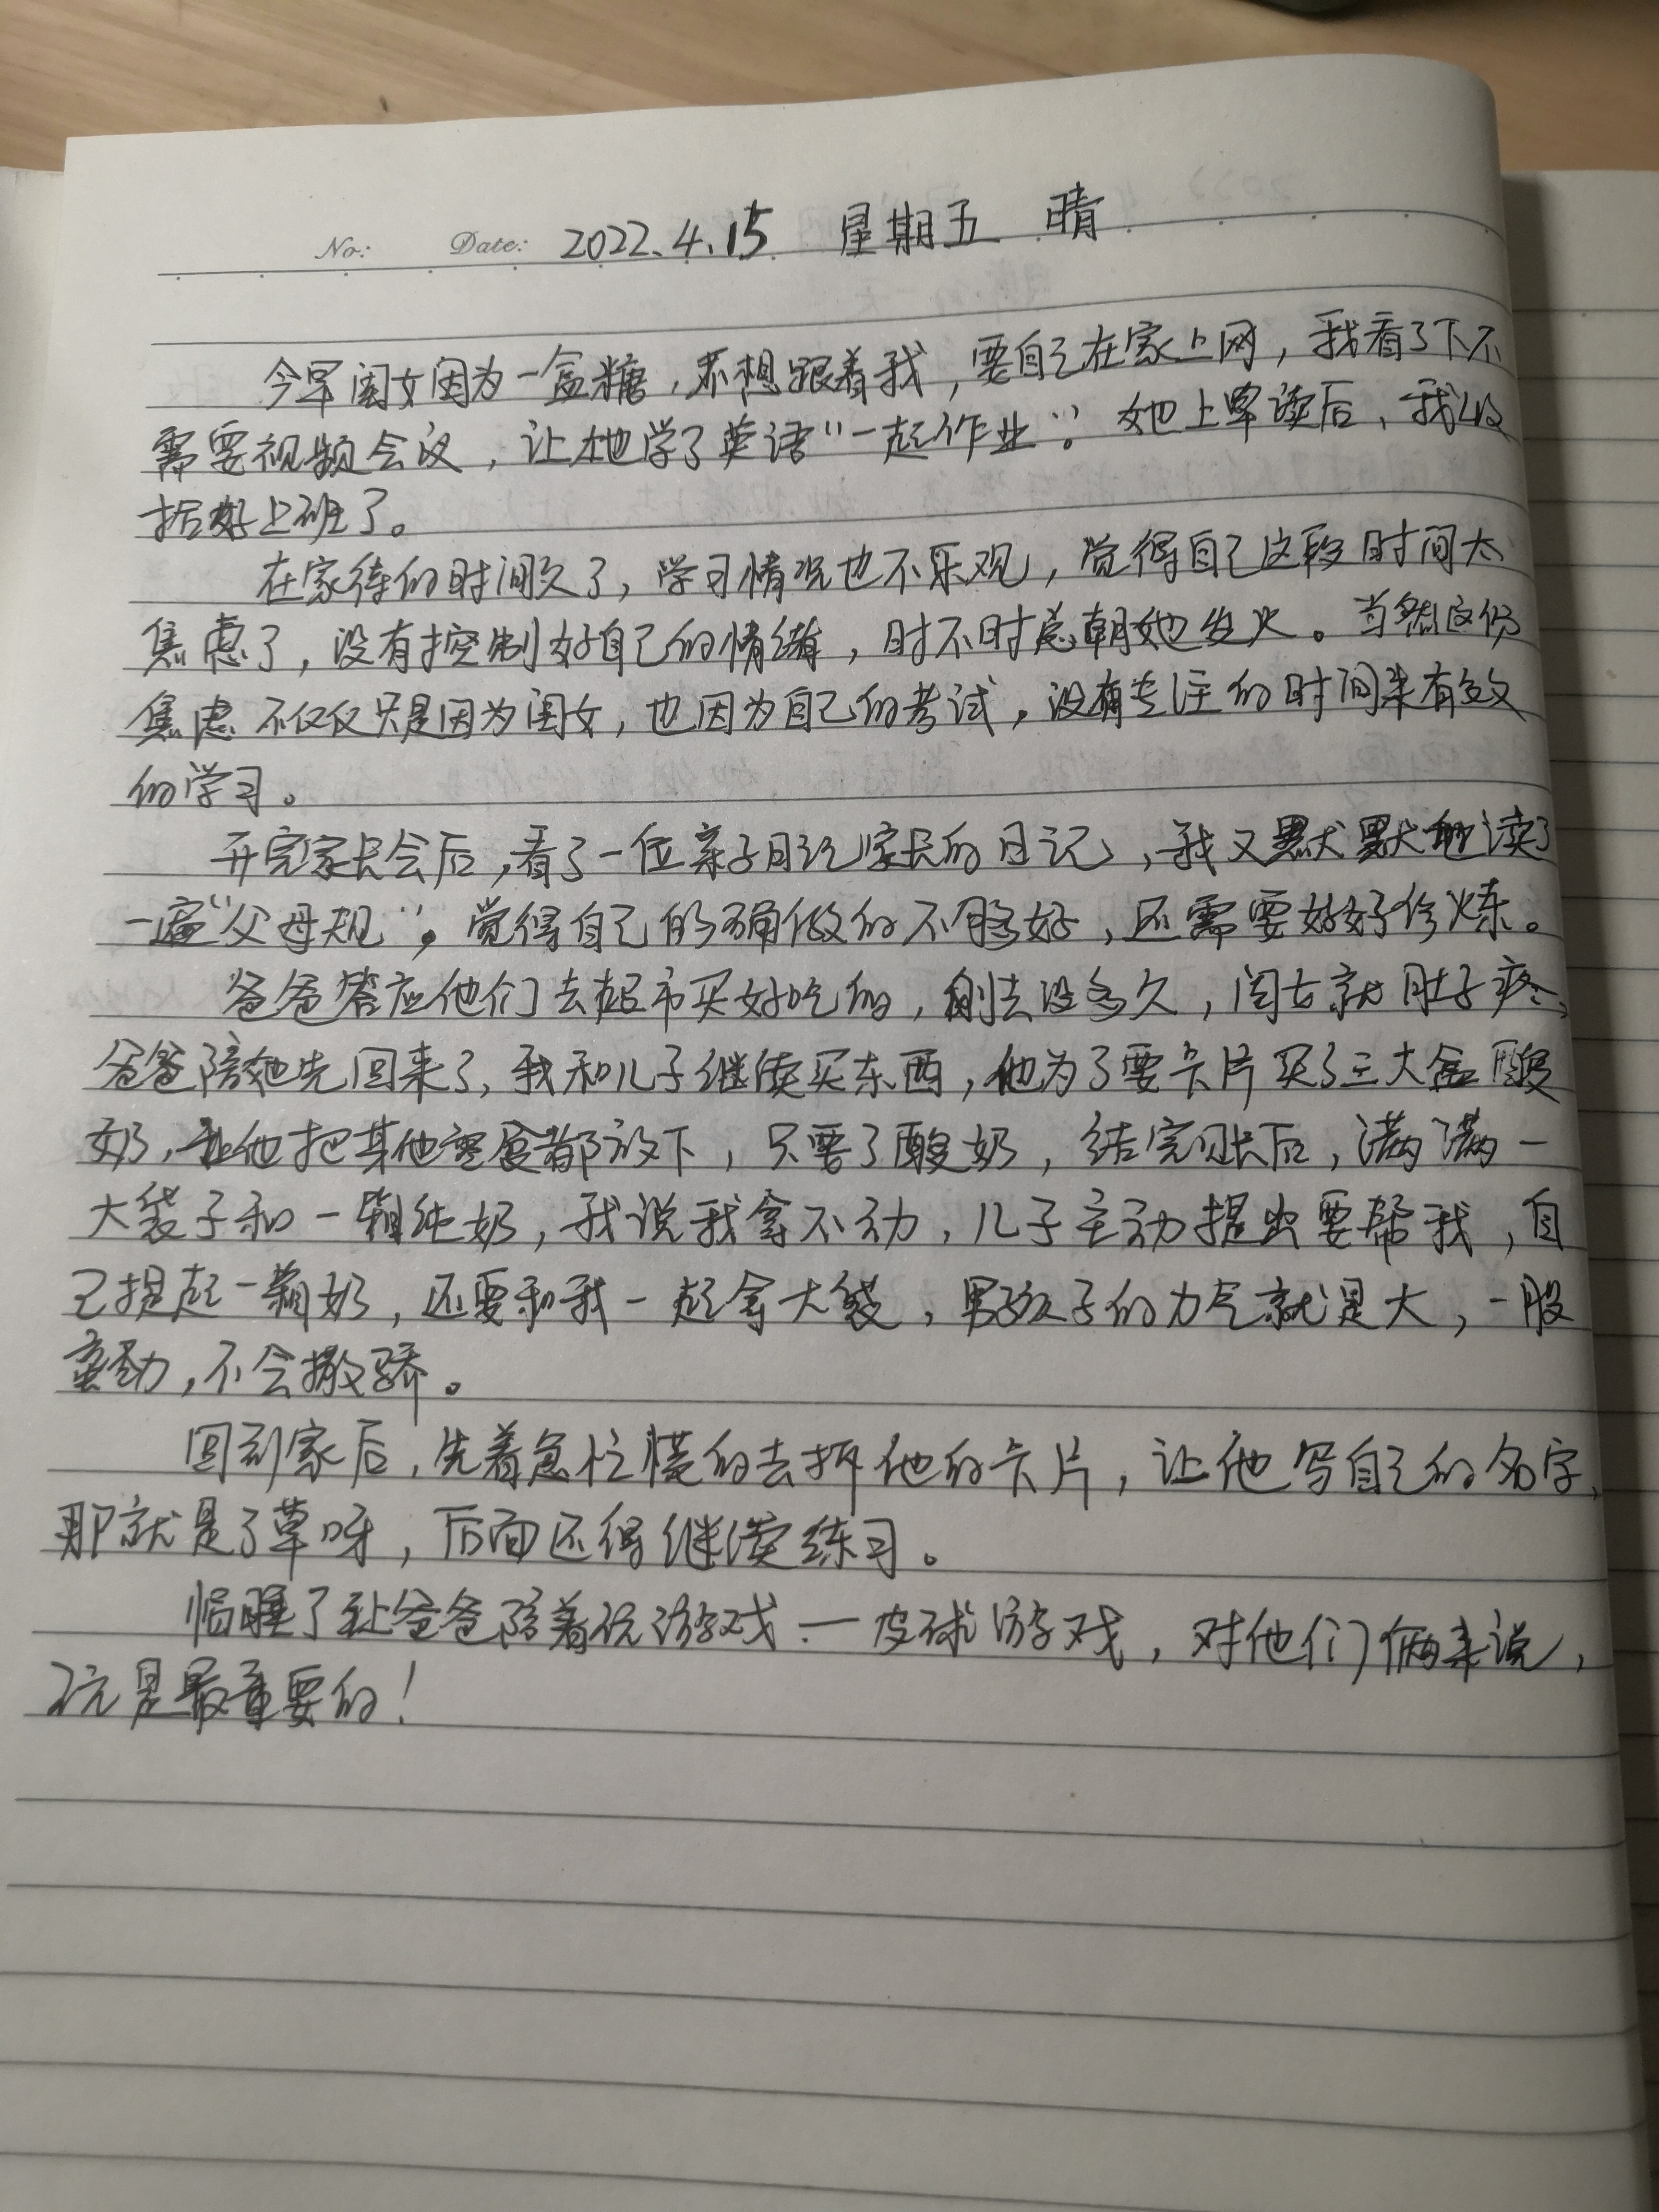 No: Date: 2022.4.15 星期五 晴
今早闺女因为一盒糖，不想跟着我，要自己在家上网，我看了下不
需要视频会议，让她学了英语“一起作业”。她上早读后，我收
拾好上班了。
在家待的时间久了，学习情况也不乐观，觉得自己这段时间太
焦虑了，没有控制好自己的情绪，时不时总朝她发火。当然这份
焦虑不仅仅只是因为闺女，也因为自己的考试，没有专注的时间来有效
的学习。
开完家长会后，看了一位亲子日记家长的日记，我又默默地读了
一遍“父母规”，觉得自己的确做的不够好，还需要好好修炼。
爸爸答应他们去超市买好吃的，刚去没多久，闺女就肚子疼，
爸爸陪她先回来了，我和儿子继续买东西，他为了要卡片买了三大盒酸
奶，让他把其他零食都放下，只要了酸奶，结完账后，满满一
大袋子和一箱纯奶，我说我拿不动，儿子主动提出要帮我，自
己提起一箱奶，还要和我一起拿大袋，男孩子的力气就是大，一股
蛮劲，不会撒骄。
回到家后，先着急忙慌的去拆他的卡片，让他写自己的名字，
那就是了草呀，后面还得继续练习。
临睡了让爸爸陪着玩游戏—皮球游戏，对他们俩来说，
玩是最重要的！